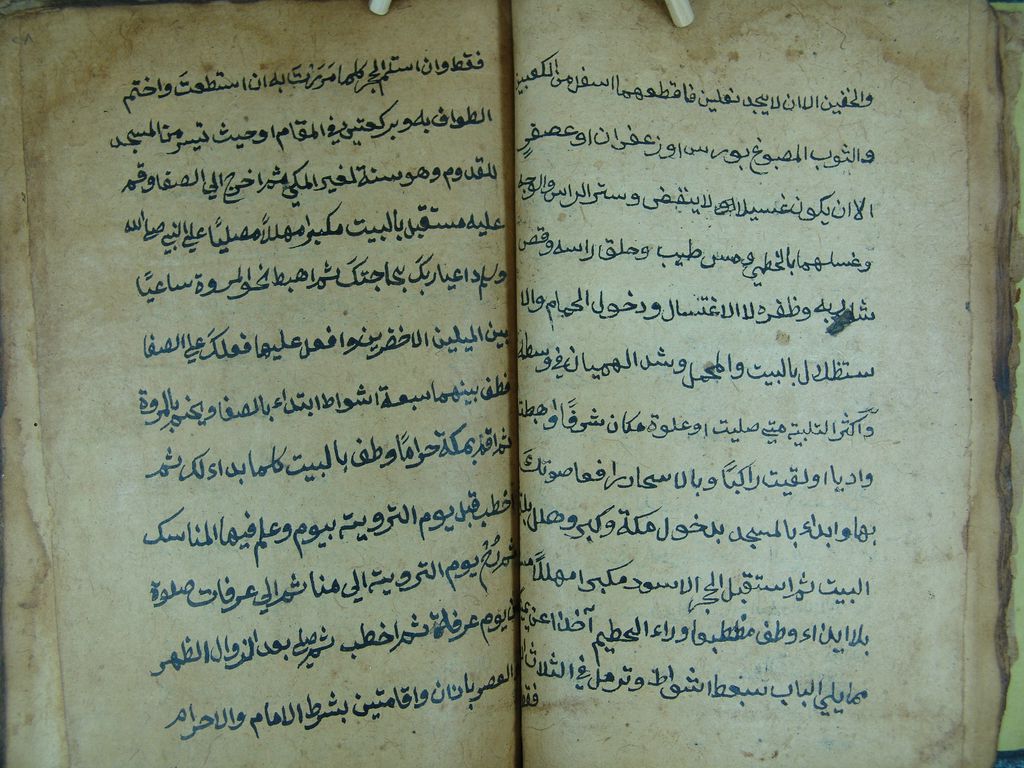 والخفين الا ان لا يجد نعلين فاقطعهما اسفل من الكعبين
والثوب المصبوغ بورس او زعفران او عصفر
الا ان يكون غسيلا لا ينفض وستر الراس والوجه
وغسلهما بالخطمي ومس طيب وحلق راسه وقص
شاربه وظفره لا الاغتسال ودخول الحمام والا
ستظلال بالبيت والمحمل وشد الهميان في وسطه
واكثر التلبية متى صليت او علوة مكان شرفًا او هبطت
واديا او لقيت راكبًا وبالاسحار رافعا صوتك
بها وابداء بالمسجد بدخول مكة وكبر وهلل
البيت ثم استقبل الحجر الاسود مكبرا مهللًا
بلا ايذاء وطف مضطبعا وراء الحطيم آخذا عن
مما يلي الباب سبعة اشواط وترمل في الثلاث
فقط
فقط وان استلم الحجر كلما مررت به ان استطعت واختم
الطواف به وبركعتين في المقام او حيث تيسر من المسجد
للقدوم وهو سنة لغير المكي ثم اخرج الي الصفا وقم
عليه مستقبل بالبيت مكبرا مهللًا مصليًا علي النبي صلى الله
وسلم داعيا ربك بحاجتك ثم اهبط نحو المروة ساعيًا
بين الميلين الاخضرين وافعل عليها فعلك علي الصفا
فطف بينهما سبعة اشواط ابتداء بالصفا ويختم بالمروة
ثم اقم بمكة حرامًا وطف بالبيت كلما بداء لك ثم
اخطب قبل يوم التروية بيوم وعلم فيها المناسك
ثم رُح يوم التروية الي منا ثم الي عرفات صلوة
يوم عرفة ثم اخطب ثم صلي بعد الزوال الظهر
العصر باذان واقامتين بشرط الامام والاحرام